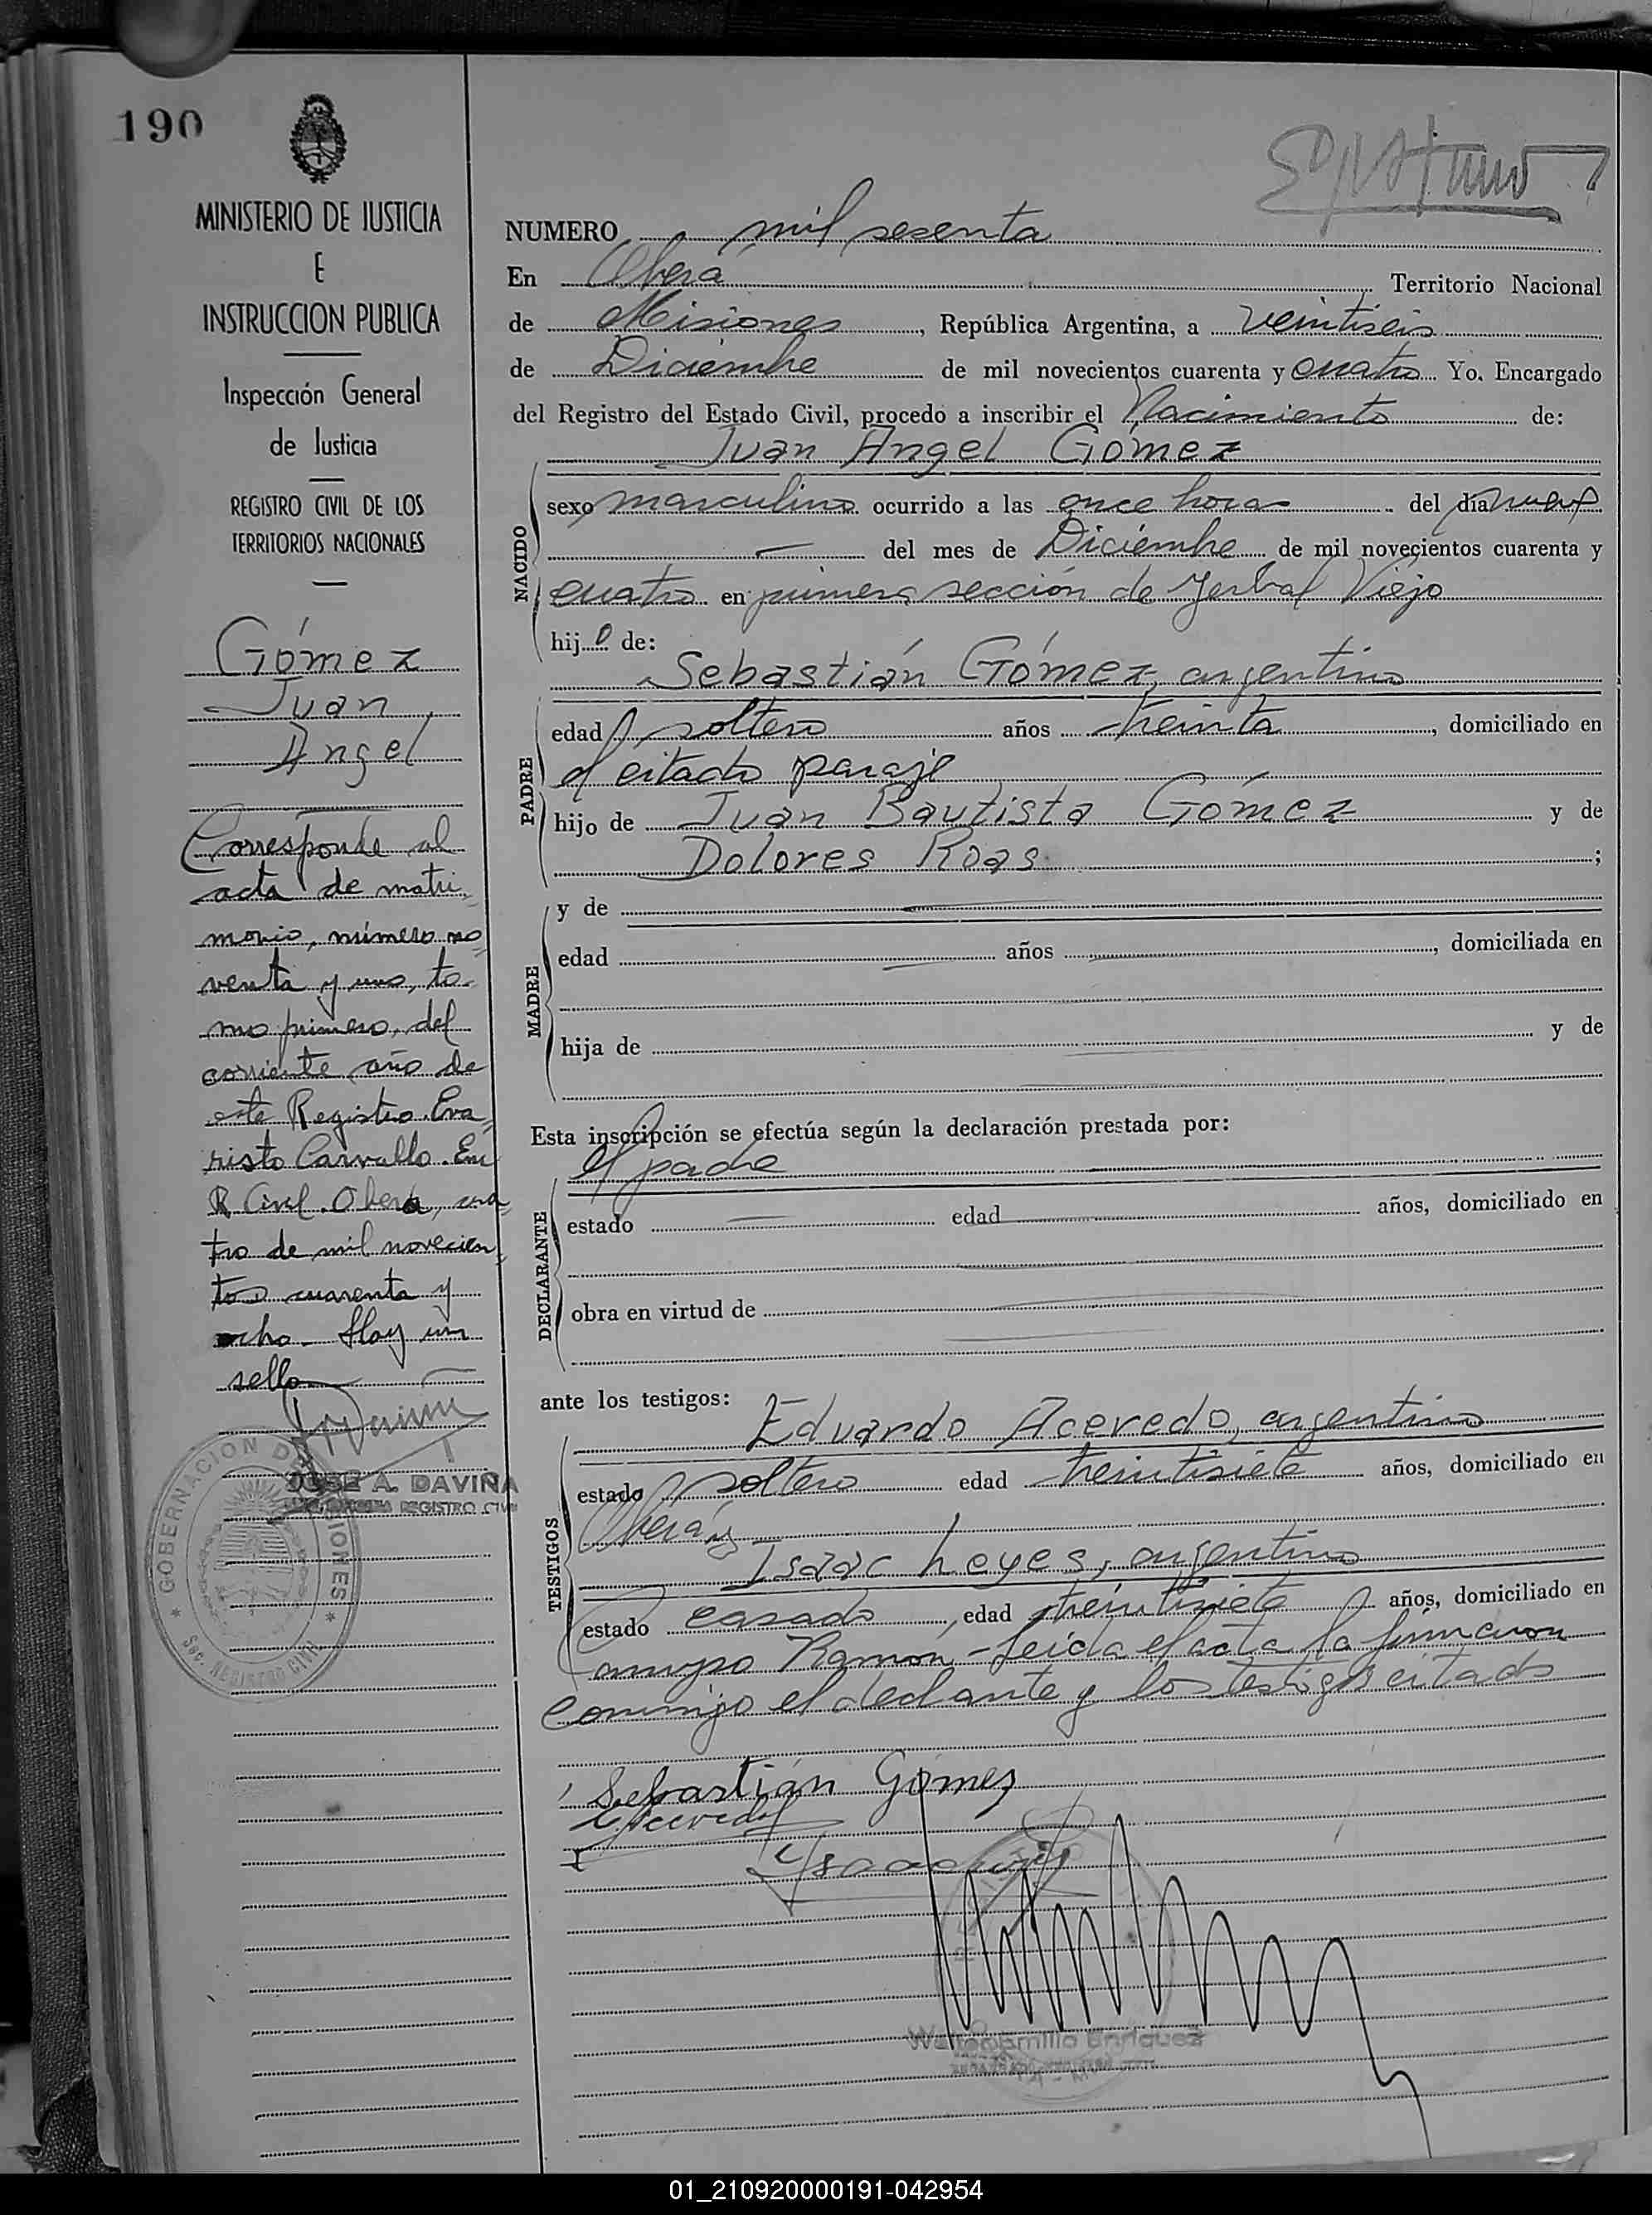 190
MINISTERIO DE JUSTICIA
E
INSTRUCCION PUBLICA
Inspección General
de Justicia
REGISTRO CIVIL DE LOS
TERRITORIOS NACIONALES
Gómez
Juan
Angel
Corresponde al
acta de matri-
monio, número no-
venta y uno, to-
mo primero, del
corriente año de
este Registro. Eva-
risto Carvallo. Enc.
R. Civil. Oberá, cua-
tro de mil novecien-
tos cuarenta y
ocho. Hay un
sello
JOSE A. DAVIÑA
REGISTRO CIVIL
GOBERNACION DE MISIONES
Sec. REGISTRO CIVIL
NUMERO mil sesenta
En Oberá Territorio Nacional
de Misiones, República Argentina, a veintiseis
de Diciembre de mil novecientos cuarenta y cuatro Yo. Encargado
del Registro del Estado Civil, procedo a inscribir el Nacimiento de:
Juan Angel Gómez
NACIDO
sexo masculino ocurrido a las once horas del día nueve
— del mes de Diciembre de mil novecientos cuarenta y
cuatro en primera sección de Yerbal Viejo
hijo de:
Sebastián Gómez, argentino
PADRE
edad soltero años treinta, domiciliado en
el citado paraje
hijo de Juan Bautista Gómez y de
Dolores Roas ;
MADRE
y de
edad años , domiciliada en
hija de y de
Esta inscripción se efectúa según la declaración prestada por:
el padre
DECLARANTE
estado — edad años, domiciliado en
obra en virtud de
ante los testigos:
Eduardo Acevedo, argentino
TESTIGOS
estado soltero edad treintisiete años, domiciliado en
Oberá y
Isaac Leyes, argentino
estado casado, edad treintisiete años, domiciliado en
Campo Ramón - Leída el acta la firmaron
conmigo el declante y los testigos citado
Sebastián Gómez
EAcevedo
Walter Emilio Enriquez
01_210920000191-042954